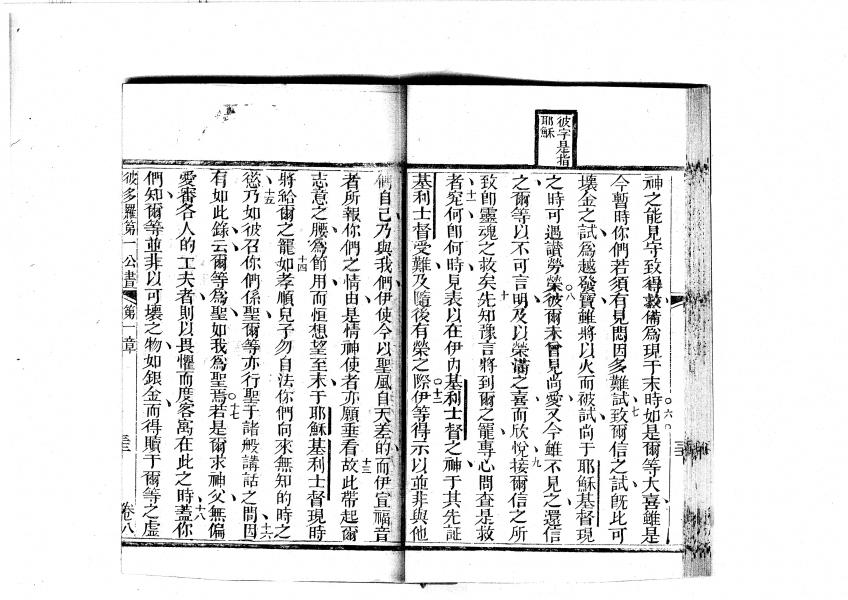 彼字是指
耶穌
神之能見守致得救備為現于末時如是爾等大喜雖是
今暫時你們若須有見悶因多難試致爾信之試旣此可
壞金之試為越發寶雖將以火而被試尚于耶穌基督現
之時可遇讚勞榮彼爾未曾見尚愛又今雖不見之還信
之爾等以不可言明及以榮滿之喜而欣悅接爾信之所
致卽靈魂之救矣先知豫言將到爾之寵專心問查是救
者究何卽何時見表以在伊內基利士督之神于其先証
基利士督受難及隨後有榮之際伊等得示以並非與他
們自己乃與我們伊使今以聖風自天差的而伊宣福音
者所報你們之情由是情神使者亦願垂看故此帶起爾
志意之腰為節用而恒想望至末于耶穌基利士督現時
將給爾之寵如孝順兒子勿自法你們向來無知的時之
慾乃如彼召你們係聖爾等亦行聖于諸般講話之間因
有如此錄云爾等為聖如我為聖焉若是爾求神父無偏
愛審各人的工夫者則以畏懼而度客寓在此之時蓋你
們知爾等並非以可壞之物如銀金而得贖于爾等之虛
彼多羅第一公書 第一章 三 卷八